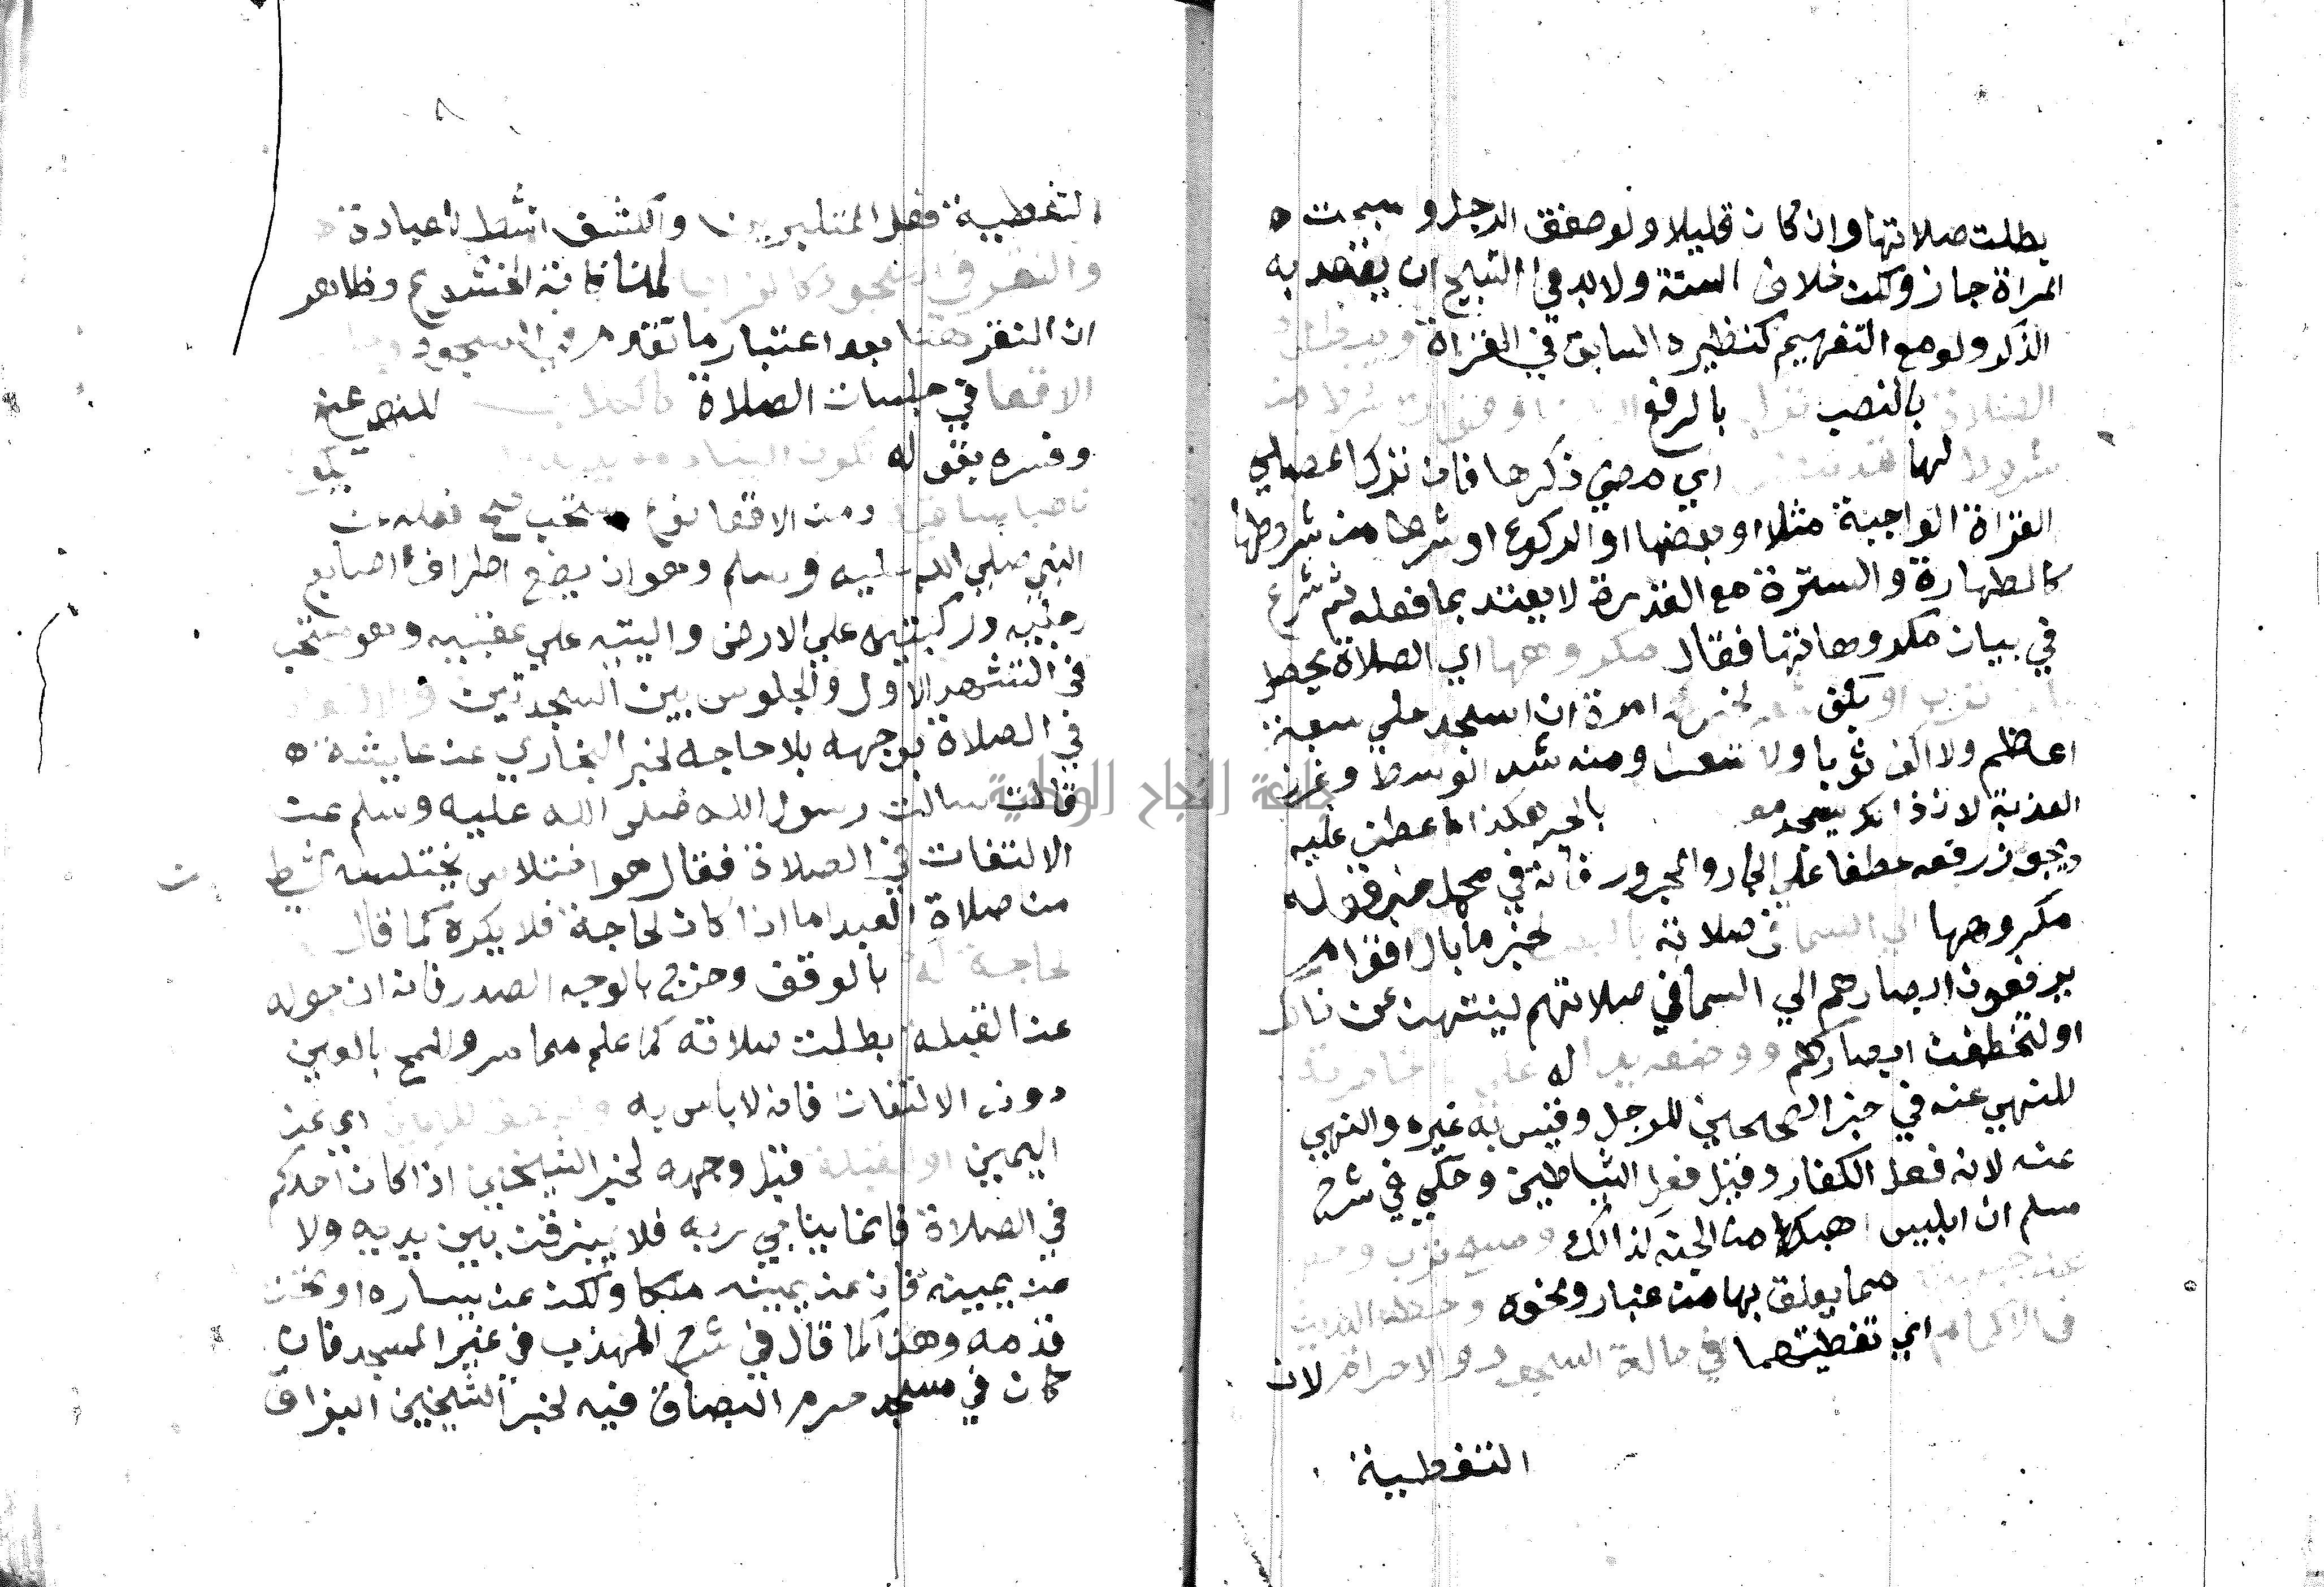 بطلت صلاتها وان كان قليلا ولو صفق الرجل و سبحت
المراة جاز ولكن خلاف السنة ولا بد في التسبيح ان يقصد به
الذكر ولو مع التفهيم كنظيره السابق في القراة
الصلاة بالنصب بالرفع
شروط لها اي مضي ذكرها فان ترك المصلي
القراة الواجبة مثلا او بعضها او الركوع او شرطا من شروطها
كالطهارة والسترة مع القدرة لا يعتد بما فعله ثم شرع
في بيان مكروهاتها فقال مكروهها اي الصلاة يحصل
ثوب او يكف لخبر امرت ان اسجد على سبعة
اعظم ولا اكف ثوبا ولا شعرا ومنه شد الوسط وغرز
العذبة لان ذالك يسجد معه بالجر هكذا ما عطف عليه
ويجوز رفعه عطفا على الجار والمجرور فانه في محل خبر قوله
مكروهها الي السما في صلاته لخبر ما بال اقوام
يرفعون ابصارهم الي السما في صلاتهم لينتهن عن ذالك
او لتخطفن ابصاركم ووضعه يدا له علي خاصرة
للنهي عنه في خبر الصحيحين للرجل وقيس به غيره والنهي
عنه لانه فعل الكفار وقيل فعل الشياطين وحكي في شرح
مسلم ان ابليس اهبط من الجنة كذالك ومسح ترب
عن جبهته مما يعلق بها من غبار ونحوه
في الاكمام اي تغطيتهما في حالة السجود والاحرام لان
التغطية
التغطية فعل المتكبرين والكشف انشط للعبادة
والنقر في السجود كالغراب لمنافاته الخشوع وظاهر
ان النقر هنا بعد اعتبار ما تقدم في السجود
الاقعا في جلسات الصلاة كالكلاب للنهي عنه
وفسره بقوله
ناصبا ساقيه ومن الاقعا نوع مستحب صح فعله عن
النبي صلي الله عليه وسلم وهو ان يضع اطراف اصابع
رجليه وركبتيه علي الارض واليته علي عقبيه وهو مستحب
في التشهد الاول والجلوس بين السجدتين
في الصلاة بوجهه بلا حاجه لخبر البخاري عن عايشة
قالت سالت رسول الله صلى الله عليه وسلم عن
الالتفات في الصلاة فقال هو اختلاس يختلسه الشيطان
من صلاة العبد اما اذا كان لحاجة فلا يكره كما قال
لحاجة له بالوقف وخرج بالوجه الصدر فانه ان حوله
عن القبلة بطلت صلاته كما علم مما مر واللمح بالعين
دون الالتفات فانه لا باس به اي عن
اليمين او القبلة قبل وجهه لخبر الشيخين اذا كان احدكم
في الصلاة فانما يناجي ربه فلا يبزقن بين يديه ولا
عن يمينه فان عن يمينه ملكا ولكن عن يساره او تحت
قدمه وهذا كما قال في شرح المهذب في غير المسجد فان
كان في مسجد حرم البصاق فيه لخبر الشيخين البزاق
جامعة النجاح الوطنية